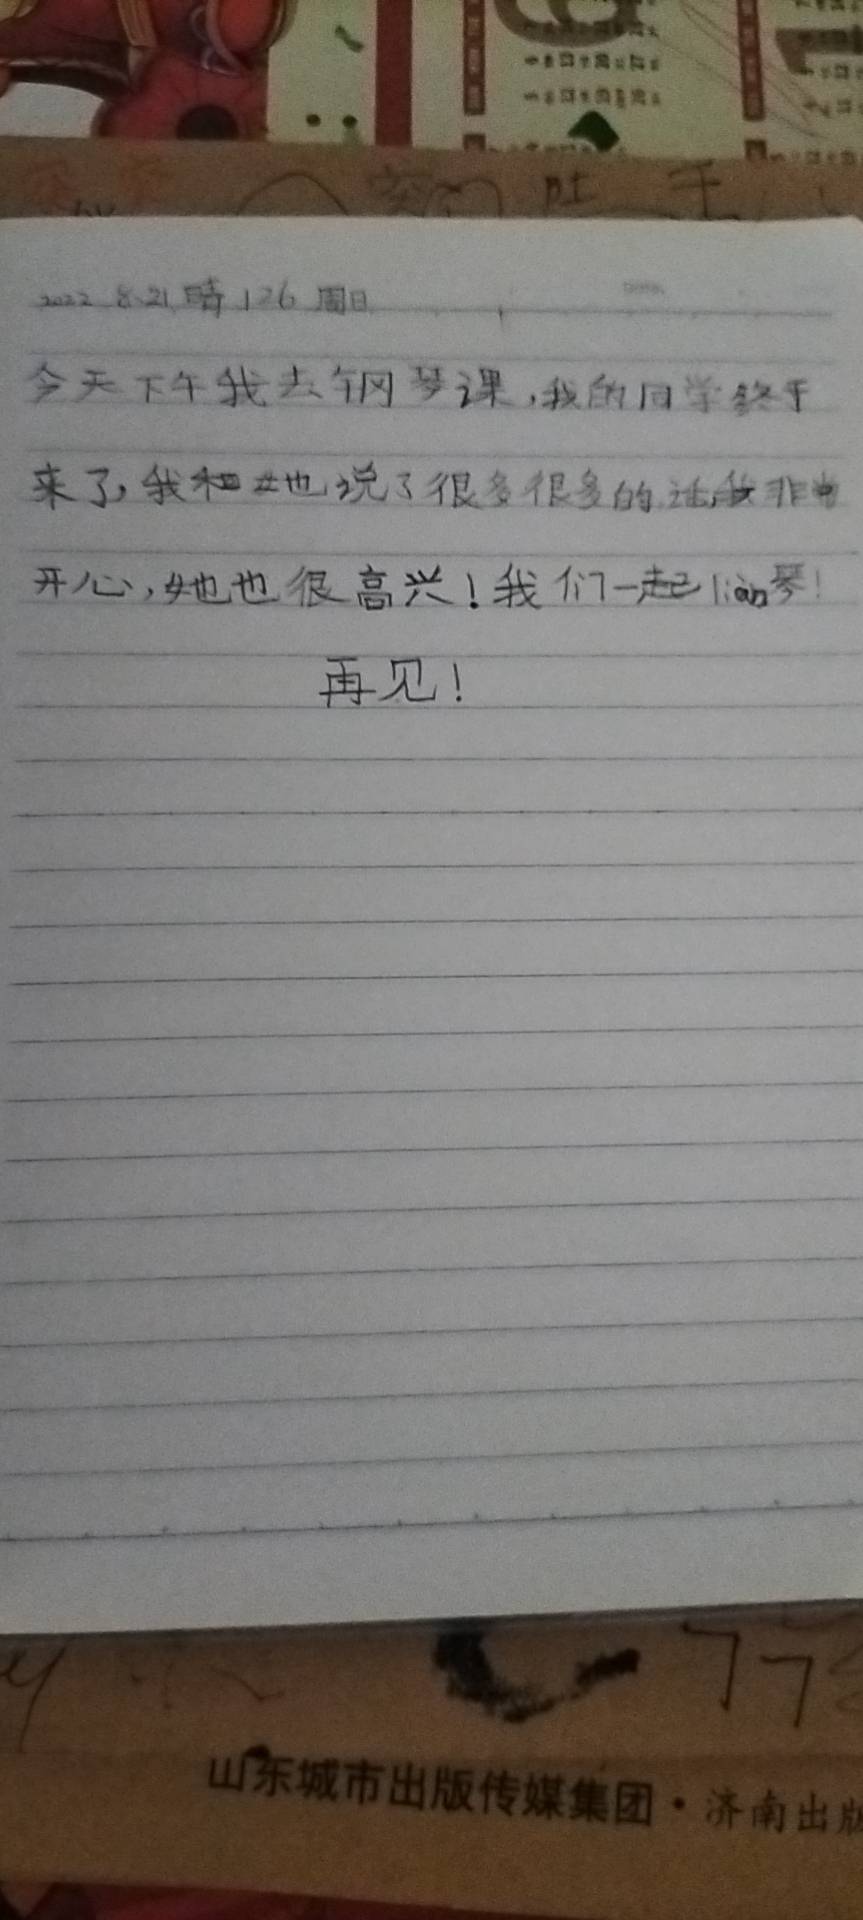 2022 8.21 晴 126 周日
今天下午我去钢琴课,我的同学终于
来了,我和她说了很多很多的话,我非常
开心,她也很高兴!我们一起liàn琴!
再见!
山东城市出版传媒集团·济南出版